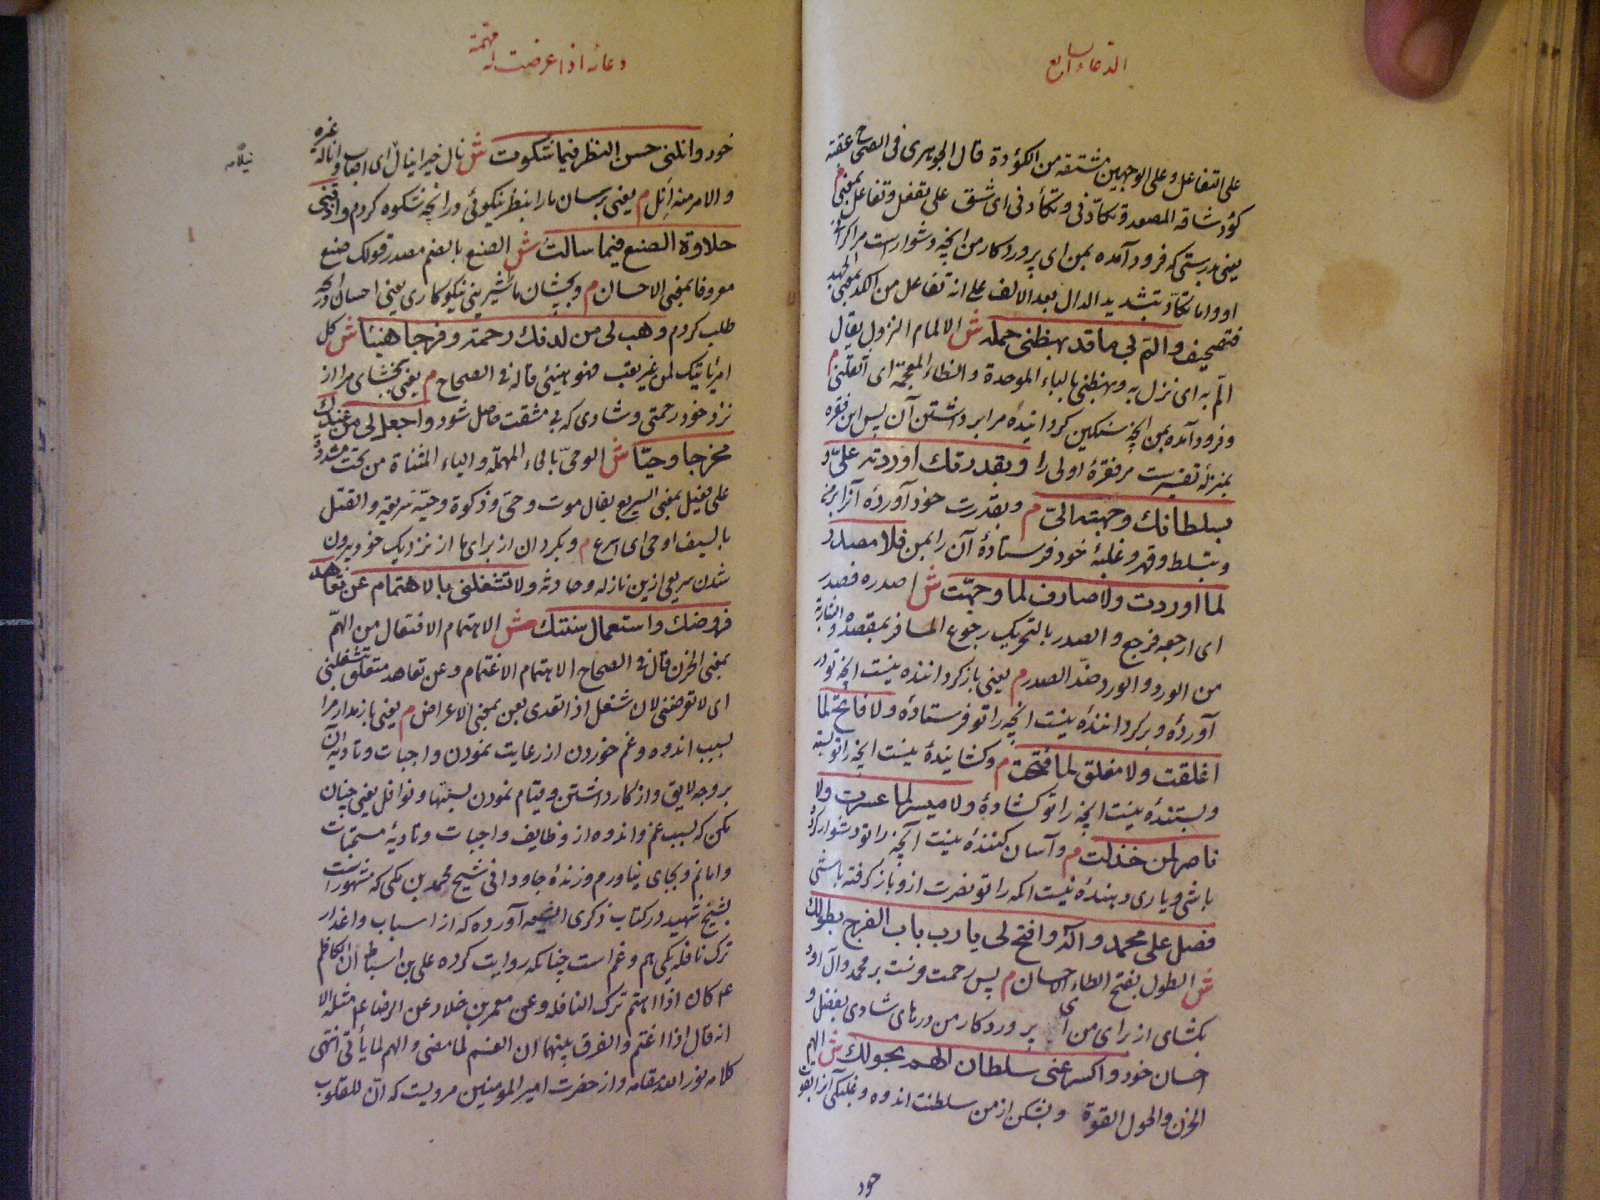 الدعاء السابع
على التفاعل وعلى الوجهين مشتقه من الكؤدة قال الجوهرى فى الصحاح عقبة
كؤد شاقه المصعد وتكأدنى وتكاءدنى اى شق على تفعل وتفاعل بمعنى م
يعنى بدرستى كه فرود آمده بمن اى پروردكار من آنچه دشوار است مرا
او واما تكادّ بتشديد الدال بعد الالف على انه تفاعل من الكد بمعنى الجهد
فتصحيف والمّ بى ما قد بهظنى حمله ش الالمام النزول يقال
المّ به اى نزل به وبهظنى بالباء الموحدة والظاء المعجمة اى اثقلنى م
وفرود آمده بمن آنچه سنكين كردانيده مرا برداشتن آن پس اين فقره
بمنزله تفسير است مر فقرهٔ اولى را وبقدرتك اوردته علىّ و
بسلطانك وجهته الىّ م وبقدرت خود آوردهٔ آنرا بر من
وبتسلط وقهر وغلبهٔ خود فرستادهٔ آن را بمن فلا مصدر
لما اوردت ولا صارف لما وجهّت ش اصدره فصدر
اى ارجعه فرجع والصدر بالتحريك رجوع المسافر بمقصده والشاربة
من الورد والورد ضدّ الصدر م يعنى باز كرداننده نيست آنچه تو در
آوردهٔ وبركرداننده نيست آنچه را تو فرستادهٔ ولا فاتح لما
اغلقت ولا مغلق لما فتحت م وكشاينده نيست آنچه را تو بسته
وبستنده نيست آنچه را تو كشادهٔ ولا ميسر لما عسرت ولا
ناصر لمن خذلت م وآسان كننده نيست آنچه را تو دشوار كرده
باشى ويارى دهنده نيست آنكه را تو نصرت ازو باز كرفته باشى
فصل على محمد وآله وافتح لى يا رب باب الفرج بطولك
ش الطول بفتح الطاء الاحسان م پس رحمت فرست بر محمد وآل او و
بكشاى از براى من اى پروردكار من درهاى شادى بفضل و
احسان خود واكسر عنى سلطان الهم بحولك ش الهم
الحزن والحول القوة وبشكن از من سلطنت اندوه وغلبكى
خود
دعائه اذا عرضت له مهمة
خود وانلنى حسن النظر فيما شكوت ش نال خيرا ينال اى اصاب واناله غيره
والامر منه أنل م يعنى برسان ما را بنظر نيكوئى در آنچه شكوه كردم واذقنى
حلاوة الصنع فيما سالت ش الصنع بالضم مصدر قولك صنع
معروفا بمعنى الاحسان م وبچشان ما شيرينى نيكوكارى يعنى احسان در آنچه
طلب كردم وهب لى من لدنك رحمة وفرجا هنيئا ش كل
امر ياتيك لمن غير تعب فهو هنيئ قاله فى الصحاح م يعنى ببخشاى مرا از
نزد خود رحمتى وشادى كه بى مشقت حاصل شود واجعل لى من عندك
مخرجا وحيّا ش الوحىّ بالحاء المهملة والياء المثناة من تحت مشددة
على فعيل بمعنى السريع يقال موت وحى وذكوة وحية سريعة والقتل
بالسيف اوحى اى اسرع م وبكردان از براى ما از نزديك خود بيرون
شدن سريعى ازين نازله وحادثه ولا تشغلنى بالاهتمام عن تعاهد
فروضك واستعمال سنتك ش الاهتمام الافتعال من الهمّ
بمعنى الحزن قال فى الصحاح الاهتمام الاغتمام وعن تعاهد متعلق بتشغلنى
اى لا تعرضنى لان شغل اذا تعدى بعن بمعنى الاعراض م يعنى باز مدار مرا
بسبب اندوه وغم خوردن از رعايت نمودن واجبات وتاديهٔ آن
بر وجه لايق واز كار داشتن وقيام نمودن بسنتها ونوافل يعنى چنان
مكن كه بسبب غم واندوه از وظايف واجبات وتاديهٔ مستحبات
وا مانم وبجاى نياورم وزندهٔ جاودانى شيخ محمد بن مكى كه مشهور است
بشيخ شهيد در كتاب ذكرى الشيعه آورده كه از اسباب واعذار
ترك نافله يكى هم وغم است چنانكه روايت كرده على بن اسباط ان الكاظم
ع كان اذا اهتم ترك النافلة وعن معمر بن خلاد عن الرضا ع مثله الا
انه قال اذا اغتم والفرق بينهما ان الغم لما مضى والهم لما يأتى انتهى
كلامه نور الله مقامه واز حضرت امير المومنين مرويست كه ان للقلوب